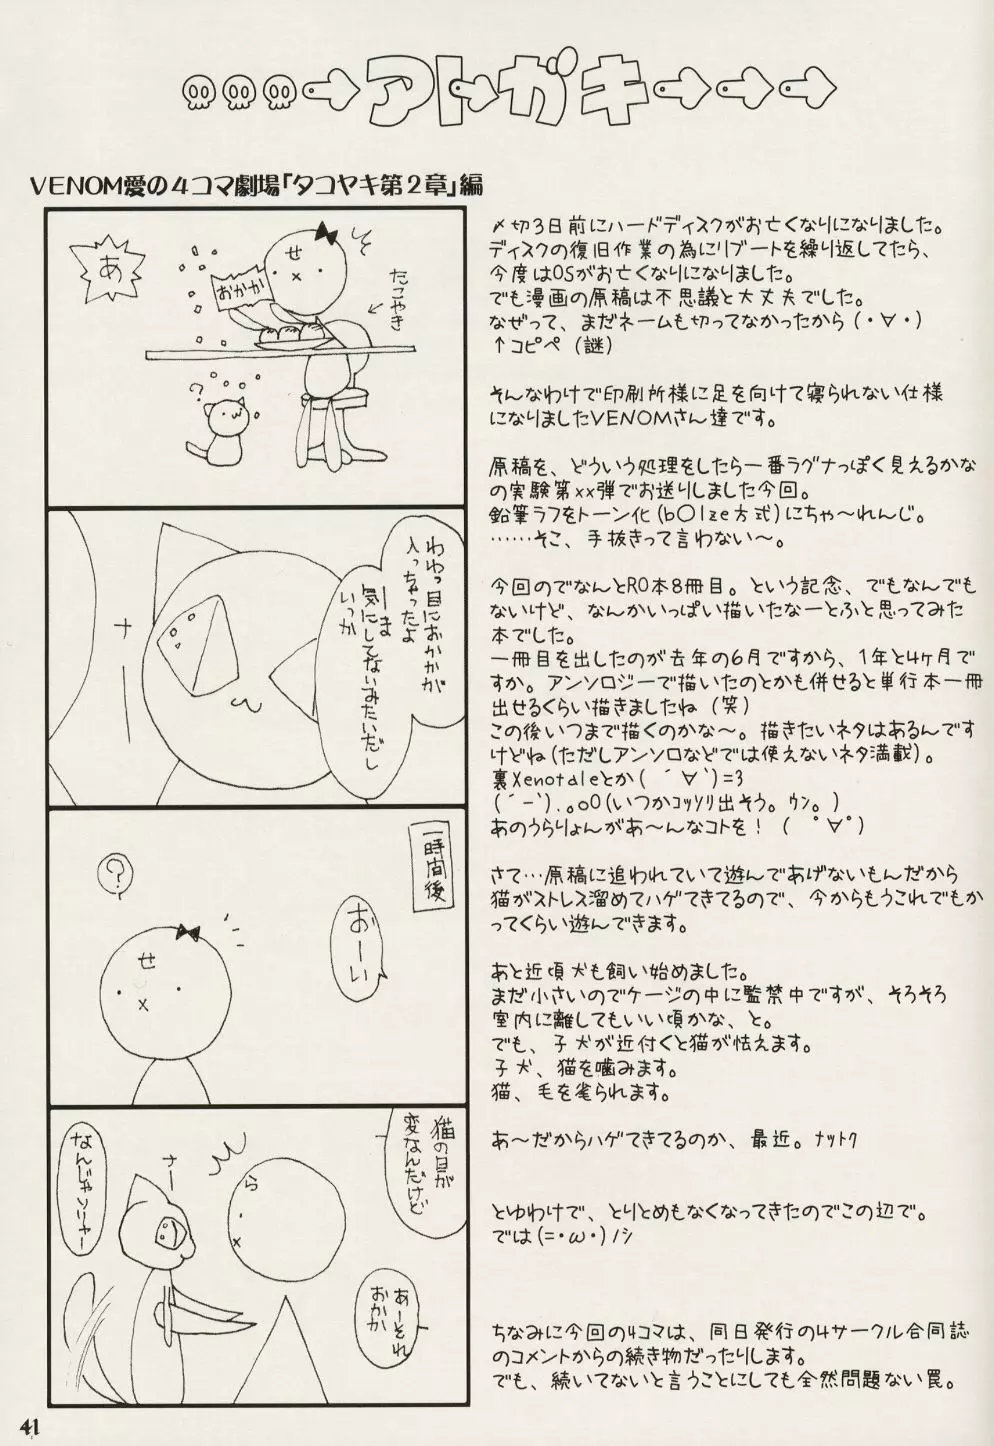 アトガキ
VENOM愛の4コマ劇場「タコヤキ第2章」編
あ
せ
おかか
たこやき
?
わわっ目におかかが
入っちゃったよ
ーま
気にしてないみたいだし
いっか
ナ
ー
一時間後
?
おーい
せ
猫の目が
変なんだけど
ら
ナー
なんじゃソリャー
あーそれ
おかか
〆切3日前にハードディスクがお亡くなりになりました。
ディスクの復旧作業の為にリブートを繰り返してたら、
今度はOSがお亡くなりになりました。
でも漫画の原稿は不思議と大丈夫でした。
なぜって、まだネームも切ってなかったから(・∀・)
↑コピペ(謎)
そんなわけで印刷所様に足を向けて寝られない仕様
になりましたVENOMさん達です。
原稿を、どういう処理をしたら一番ラグナっぽく見えるかな
の実験第xx弾でお送りしました今回。
鉛筆ラフをトーン化(b○lze方式)にちゃ〜れんじ。
……そこ、手抜きって言わない〜。
今回のでなんとRO本8冊目。という記念、でもなんでも
ないけど、なんかいっぱい描いたなーとふと思ってみた
本でした。
一冊目を出したのが去年の6月ですから、1年と4ヶ月で
すか。アンソロジーで描いたのとかも併せると単行本一冊
出せるくらい描きましたね(笑)
この後いつまで描くのかな〜。描きたいネタはあるんです
けどね(ただしアンソロなどでは使えないネタ満載)。
裏Xenotaleとか( ´∀`)=3
(´-`).。oO(いつかコッソリ出そう。ウン。)
あのうらりょんがあ〜んなコトを!( ゜∀゜)
さて…原稿に追われていて遊んであげないもんだから
猫がストレス溜めてハゲてきてるので、今からもうこれでもか
ってくらい遊んできます。
あと近頃犬も飼い始めました。
まだ小さいのでケージの中に監禁中ですが、そろそろ
室内に離してもいい頃かな、と。
でも、子犬が近付くと猫が怯えます。
子犬、猫を噛みます。
猫、毛を毟られます。
あ〜だからハゲてきてるのか、最近。ナットク
とゆわけで、とりとめもなくなってきたのでこの辺で。
では(=・ω・)ノシ
ちなみに今回の4コマは、同日発行の4サークル合同誌
のコメントからの続き物だったりします。
でも、続いてないと言うことにしても全然問題ない罠。
41